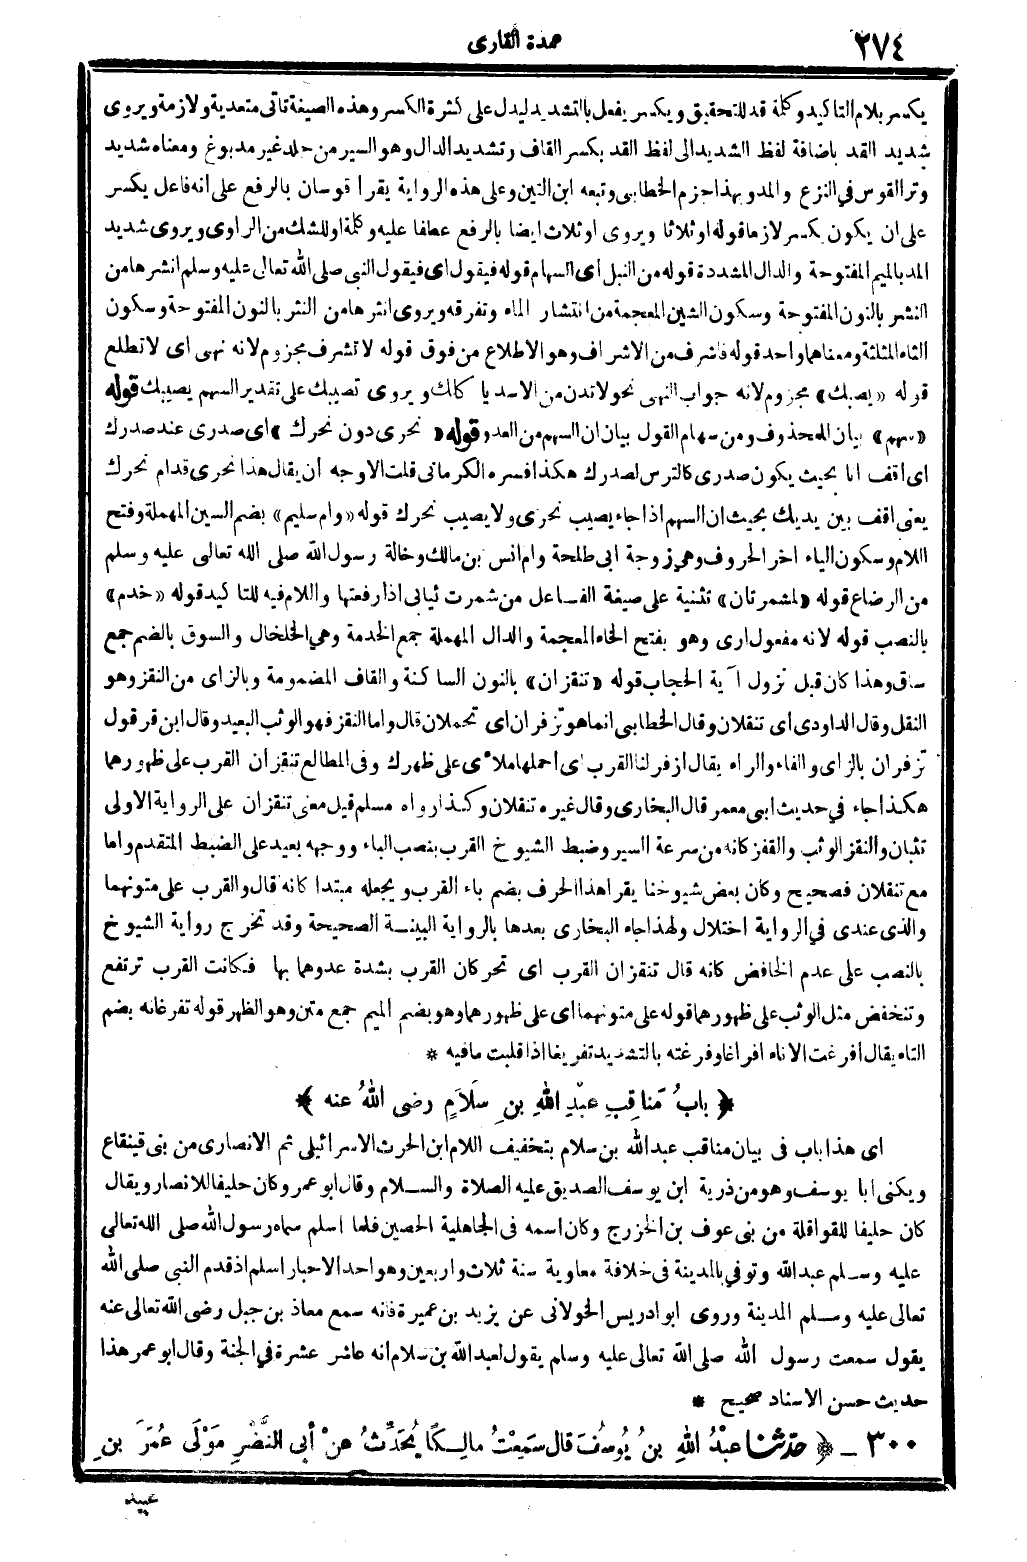 ٢٧٤
عمدة القارى
يكسر بلام التاكيد وكلمة قد للتحقيق ويكسر يفعل بالتشديد ليدل على كثرة الكسر وهذه الصيغة تاتى متعدية ولازمة ويروى
شديد القد باضافة لفظ الشديد الى لفظ القد بكسر القاف وتشديد الدال وهو السير من جلد غير مدبوغ ومعناه شديد
وتر القوس في النزع والمد وبهذا جزم الخطابى وتبعه ابن التين وعلى هذه الرواية يقرأ قوسان بالرفع على انه فاعل يكسر
على ان يكون يكسر لازما قوله اوثلاثا ويروى اوثلاث ايضا بالرفع عطفا عليه وكلمة او للشك من الراوى ويروى شديد
المد بالميم المفتوحة والدال المشددة قوله من النبل أى السهام قوله فيقول اى فيقول النبى صلى الله تعالى عليه وسلم انشرها من
النشر بالنون المفتوحة وسكون الشين المعجمة من انتشار الماء وتفرقه ويروى انثرها من النثر بالنون المفتوحة وسكون
الثاء المثلثة ومعناهما واحد قوله فاشرف من الاشراف وهو الاطلاع من فوق قوله لا تشرف مجزوم لانه نهى اى لا تطلع
قوله «يصبك» مجزوم لانه جواب النهى نحو لا تدن من الاسد يا كلك ويروى تصيبك على تقدير السهم يصيبك قوله
«سهم» بيان للمحذوف ومن سهام القول بيان ان السهم من العدو قوله «نحرى دون نحرك» أى صدرى عند صدرك
اى أقف انا بحيث يكون صدرى كالترس لصدرك هكذا فسره الكرمانى قلت الاوجه أن يقال هذا نحرى قدام نحرك
يعنى اقف بين يديك بحيث ان السهم اذا جاء يصيب نحرى ولا يصيب نحرك قوله «وام سليم» بضم السين المهملة وفتح
اللام وسكون الياء اخر الحروف وهي زوجة ابى طلحة وام انس بن مالك وخالة رسول الله صلى الله تعالى عليه وسلم
من الرضاع قوله «لمشمرتان» تثنية على صيغة الفاعل من شمرت ثيابى اذا رفعتها واللام فيه للتا كيد قوله «خدم»
بالنصب قوله لانه مفعول ارى وهو بفتح الخاء المعجمة والدال المهملة جمع الخدمة وهي الخلخال والسوق بالضم جمع
ساق وهذا كان قبل نزول آية الحجاب قوله «تنقزان» بالنون الساكنة والقاف المضمومة وبالزاى من النقز وهو
النقل وقال الداودى اى تنقلان وقال الخطابى انما هو تزفران اى تحملان قال واما النقز فهو الوثب البعيد وقال ابن قرقول
تزفران بالزاى والفاء والراء يقال ازفر لنا القرب أى احملها ملأى على ظهرك وفى المطالع تنقزان القرب على ظهورهما
هكذا جاء في حديث ابى معمر قال البخارى وقال غيره تنقلان وكذا رواه مسلم قيل معنى تنقزان على الرواية الاولى
تثبان والنقز الوثب والقفز كانه من سرعة السير وضبط الشيوخ القرب بنصب الباء ووجهه بعيد على الضبط المتقدم واما
مع تنقلان فصحيح وكان بعض شيوخنا يقرا هذا الحرف بضم باء القرب ويجعله مبتدا كانه قال والقرب على متونهما
والذى عندى في الرواية اختلال ولهذا جاء البخارى بعدها بالرواية البينة الصحيحة وقد تخرج رواية الشيوخ
بالنصب على عدم الخافض كانه قال تنقزان القرب اى تحركان القرب بشدة عدوهما بها فكانت القرب ترتفع
وتنخفض مثل الوثب على ظهورهما قوله على متونهما اى على ظهورهما وهو بضم الميم جمع متن وهو الظهر قوله تفرغانه بضم
التاء يقال أفرغت الاناء افراغا وفرغته بالتشديد تفريغا اذا قلبت مافيه *
﴿ بابُ مَناقِبِ عبْدِ اللهِ بنِ سَلَامٍ رضى اللهُ عنه ﴾
اى هذا باب فى بيان مناقب عبد الله بن سلام بتخفيف اللام ابن الحرث الاسرائيلى ثم الانصارى من بنى قينقاع
ويكنى ابا يوسف وهو من ذرية ابن يوسف الصديق عليه الصلاة والسلام وقال ابو عمر وكان حليفا للانصار ويقال
كان حليفا للقواقلة من بنى عوف بن الخزرج وكان اسمه فى الجاهلية الحصين فلما اسلم سماه رسول الله صلى الله تعالى
عليه وسلم عبد الله وتوفي بالمدينة فى خلافة معاوية سنة ثلاث واربعين وهو احد الاحبار اسلم اذ قدم النبى صلى الله
تعالى عليه وسلم المدينة وروى ابو ادريس الخولانى عن يزيد بن عميرة فانه سمع معاذ بن جبل رضى الله تعالى عنه
يقول سمعت رسول الله صلى الله تعالى عليه وسلم يقول لعبد الله بن سلام أنه عاشر عشرة في الجنة وقال ابو عمر هذا
حديث حسن الاسناد صحيح *
٣٠٠ - ﴿ حدّثنا عبْدُ اللهِ بنُ يُوسُفَ قال سَمِعْتُ مالِكًا يُحَدِّثُ عنْ أبى النَّضْرِ مَوْلَى عُمَرَ بنِ
عبيد